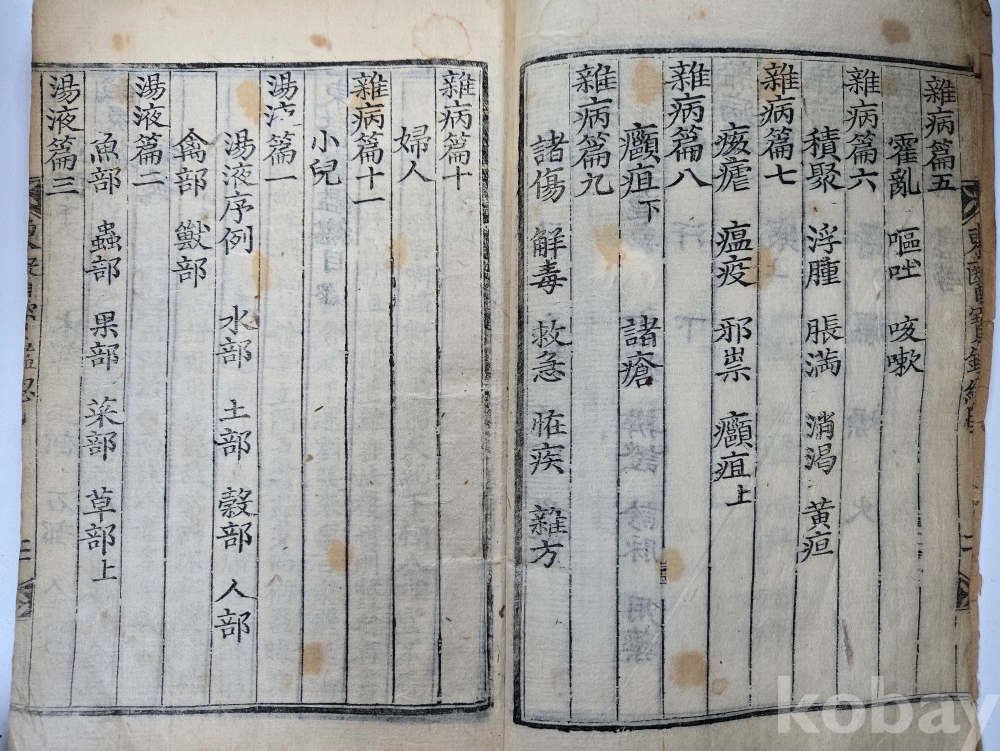 雜病篇五
霍亂 嘔吐 咳嗽
雜病篇六
積聚 浮腫 脹滿 消渴 黃疸
雜病篇七
痎瘧 瘟疫 邪祟 癰疽上
雜病篇八
癰疽下 諸瘡
雜病篇九
諸傷 解毒 救急 怪疾 雜方
雜病篇十
婦人
雜病篇十一
小兒
湯液篇一
湯液序例 水部 土部 穀部 人部
禽部 獸部
湯液篇二
魚部 蟲部 果部 菜部 草部上
湯液篇三
東醫寶鑑
kobay